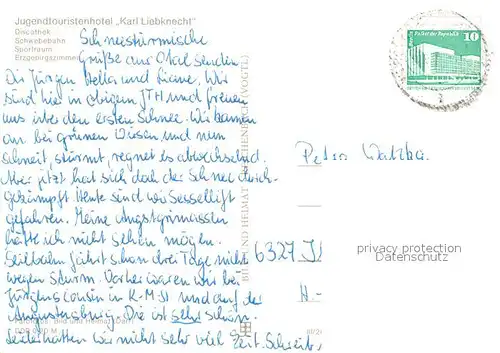 Jugendtouristenhotel „Karl Liebknecht"
Discothek
Schwebebahn
Sportraum
Erzgebirgszimmer
Schneestürmische
Grüße aus Othal senden
Dir Jürgen Hella und Liane. Wir
sind hier in obigem JTH und freuen
uns über den ersten Schnee. Wir kamen
an bei grünen Wiesen und nun
schneit, stürmt, regnet es abwechselnd.
Aber jetzt hat sich doch der Schnee durch-
gekämpft. Heute sind wir Sessellift
gefahren. Meine Angstgrimassen
hätte ich nicht sehen mögen.
Seilbahn fährt schon drei Tage nicht
wegen Sturm. Vorher waren wir bei
Jürgens Cousin in K-M-St und auf der
Augustusburg. Die ist sehr schön.
Leider hatten wir nicht sehr viel Zeit. Schreib
BILD UND HEIMAT REICHENBACH (VOGTL)
Palast der Republik
10
Petra
6327
H.-
privacy protection
Datenschutz